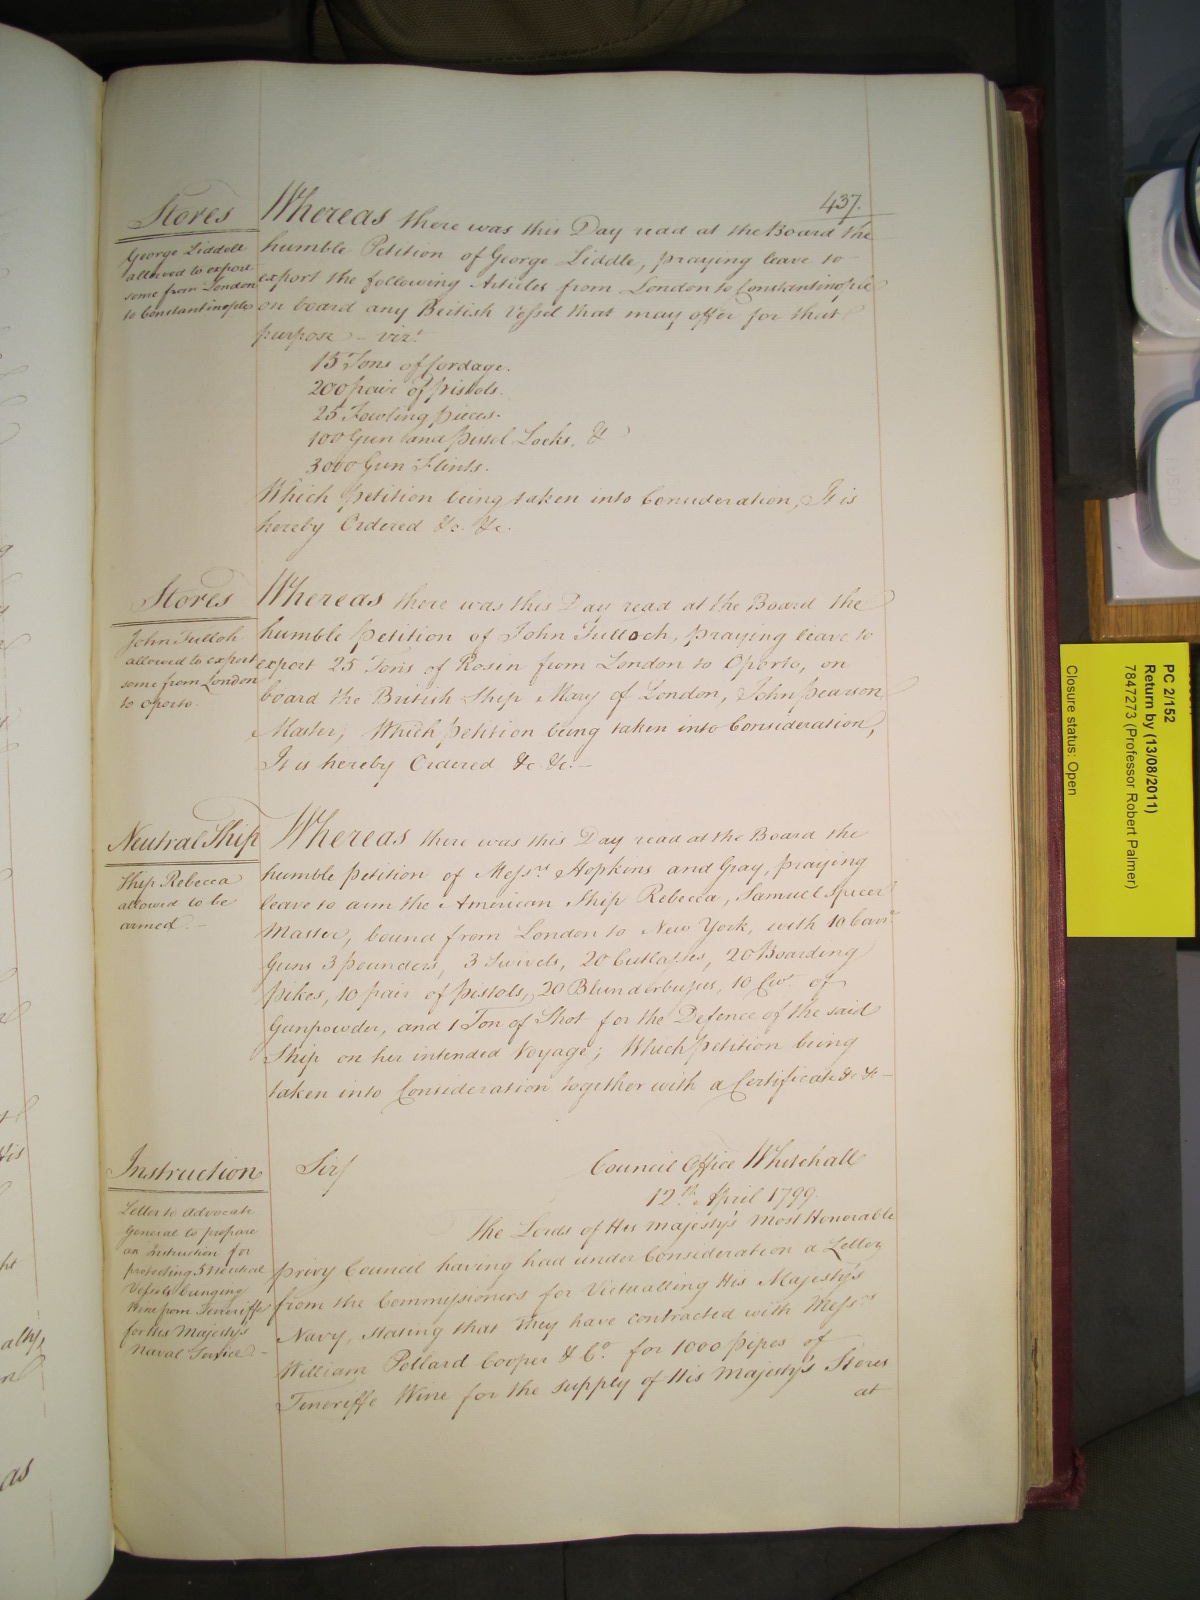 437.
Stores
George Liddell
allowed to export
some from London
to Constantinople
Whereas there was this Day read at the Board the
humble Petition of George Liddle, praying leave to
export the following Articles from London to Constantinople
on board any British Vessel that may offer for that
purpose – vizt.
15 Tons of Cordage.
200 pair of pistols.
25 Fowling pieces.
100 Gun and pistol Locks, &
3000 Gun Flints.
Which petition being taken into Consideration, It is
hereby Ordered &c. &c.
Stores
John Tulloh
allowed to export
some from London
to Oporto.
Whereas there was this Day read at the Board the
humble petition of John Tulloch, praying leave to
export 25 Tons of Rosin from London to Oporto, on
board the British Ship Mary of London, John pearson
Master; Which petition being taken into Consideration,
It is hereby Ordered &c &c. –
Neutral Ship
Ship Rebecca
allowed to be
armed. –
Whereas there was this Day read at the Board the
humble petition of Messrs. Hopkins and Gray, praying
leave to arm the American Ship Rebecca, Samuel Spicer
Master, bound from London to New York, with 10 Carre.
Guns 3 pounders, 3 Swivels, 20 Cutlasses, 20 Boarding
pikes, 10 pair of pistols, 20 Blunderbusses, 10 Cwt. of
Gunpowder, and 1 Ton of Shot for the Defence of the said
Ship on her intended Voyage; Which petition being
taken into Consideration together with a Certificate &c &c –
Instruction
Letter to Advocate
General to prepare
an Instruction for
protecting 5 neutral
Vessels bringing
Wine from Teneriffe
for His Majesty's
Naval Service –
Sir/
Council Office Whitehall
12th. April 1799.
The Lords of His Majesty's most Honorable
privy Council having had under Consideration a Letter
from the Commissioners for Victualling His Majesty's
Navy, stating that they have contracted with Messrs.
William Pollard Cooper & Co. for 1000 pipes of
Teneriffe Wine for the supply of His Majesty's Stores
at
PC 2/152
Return by (13/08/2011)
7847273 (Professor Robert Palmer)
Closure status: Open